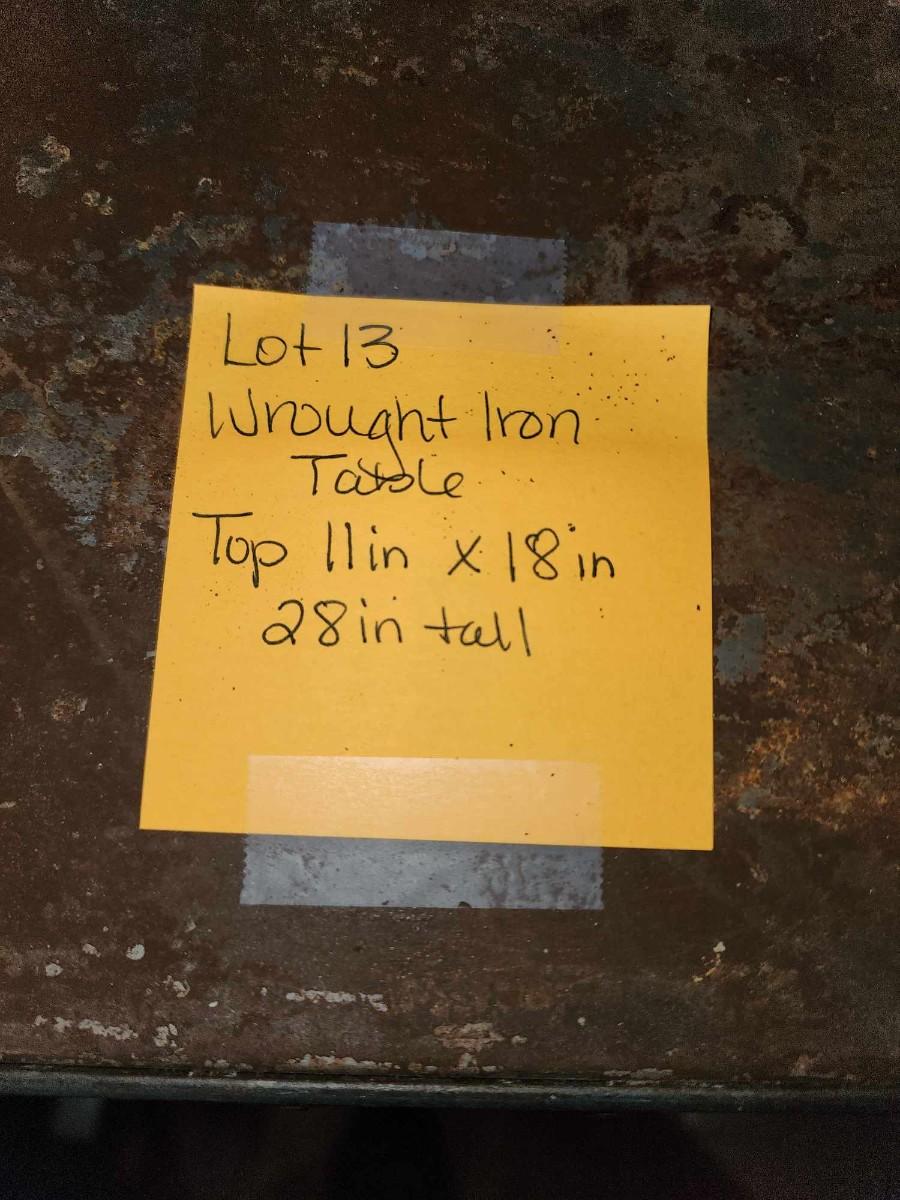 Lot 13
Wrought Iron
Table
Top 11in x 18in
28in tall